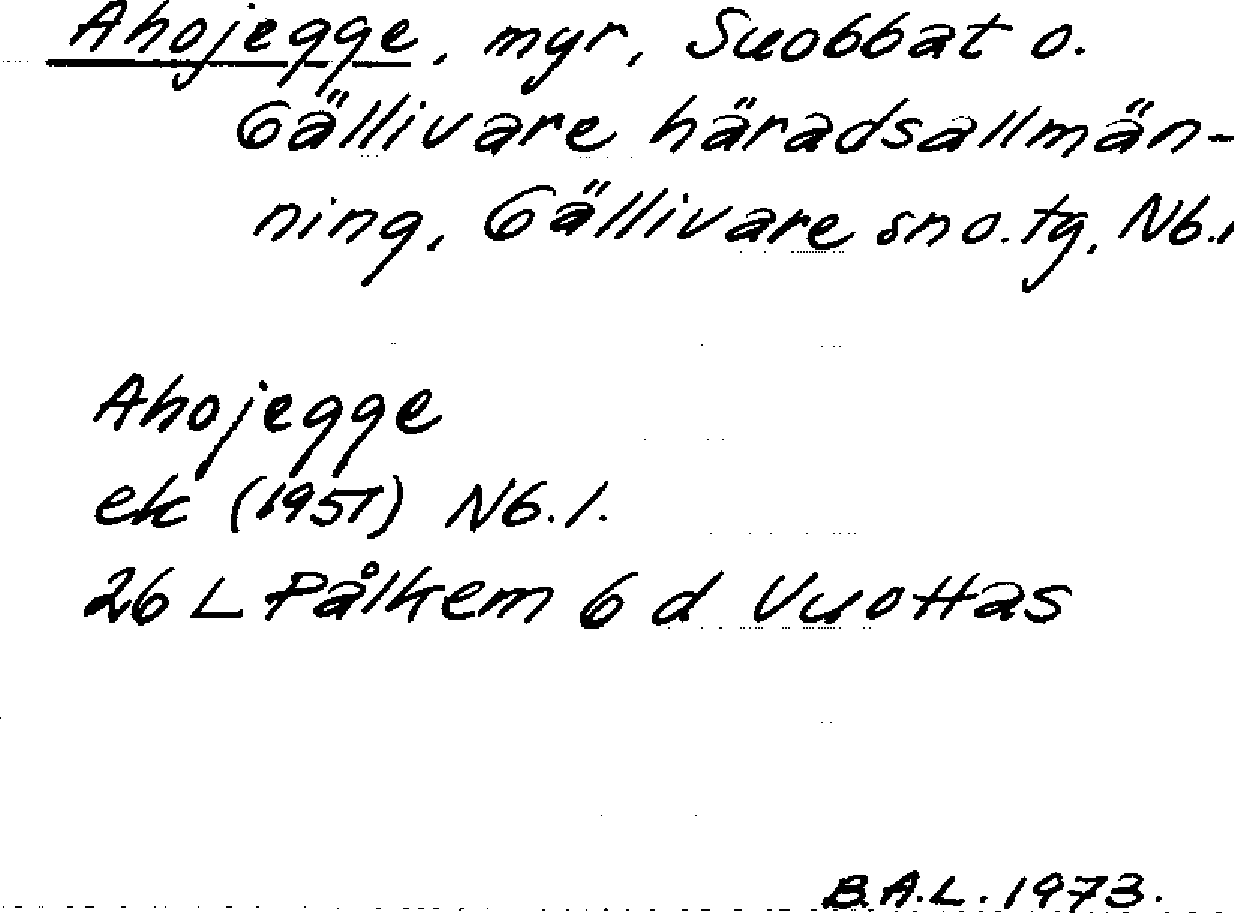 Ahojegge, myr, Suobbat o.
Gällivare häradsallmän-
ning, Gällivare sn o. tg, Nb.
Ahojegge
ek (1951) Nb. l.
26 L Pålkem 6 d Vuottas
B.A.L. 1973.